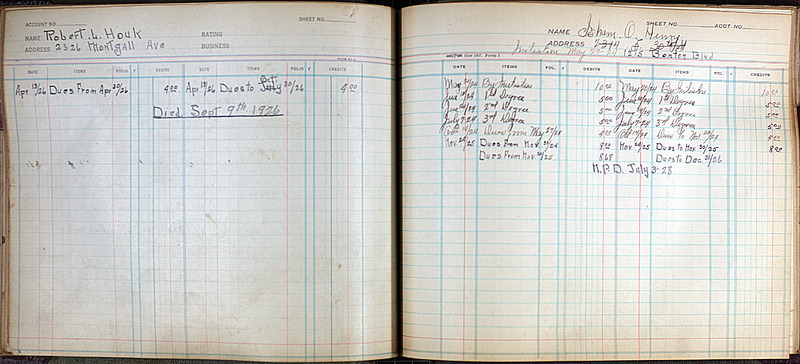 ACCOUNT NO.
SHEET NO.
NAME Robert L. Houk RATING
ADDRESS 2326 Montgall Ave BUSINESS
DATE ITEMS FOLIO ✓ DEBITS DATE ITEMS FOLIO ✓ CREDITS
Apr 19/26 Dues From Apr 20/26 4 00 Apr 19/26 Dues to July Oct 20/26 4 00
Died Sept 9th 1926
SHEET NO. ACCT. NO.
NAME O. Henry
ADDRESS 2344 E 30th St
Initiation May 1215 Benton Blvd
DATE ITEMS FOL. ✓ DEBITS DATE ITEMS FOL. ✓ CREDITS
May /24 By Initiation 10 00 May /24 By Initiation 10 00
June /24 1st Degree 5 00 June /24 1st Degree 5 00
June /24 2nd Degree 5 00 June /24 2nd Degree 5 00
July 7-24 3rd Degree 5 00 July 7-24 3rd Degree 5 00
Oct /24 Dues From May 4 00 Oct /24 Dues To Nov 4 00
Nov. 20/25 Dues From Nov. 8 00 Nov. 20/25 Dues to Nov. 30/25 8 00
Dues From Nov. 8.67 Dues to Dec. 31/26
N.P.D. July 3-28